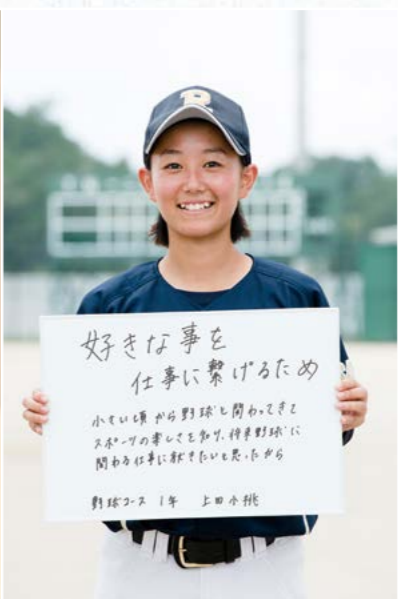 R
好きな事を
仕事に繋げるため
小さい頃から野球と関わってきて
スポーツの楽しさを知り、将来野球に
関わる仕事に就きたいと思ったから
野球コース 1年 上田小桃